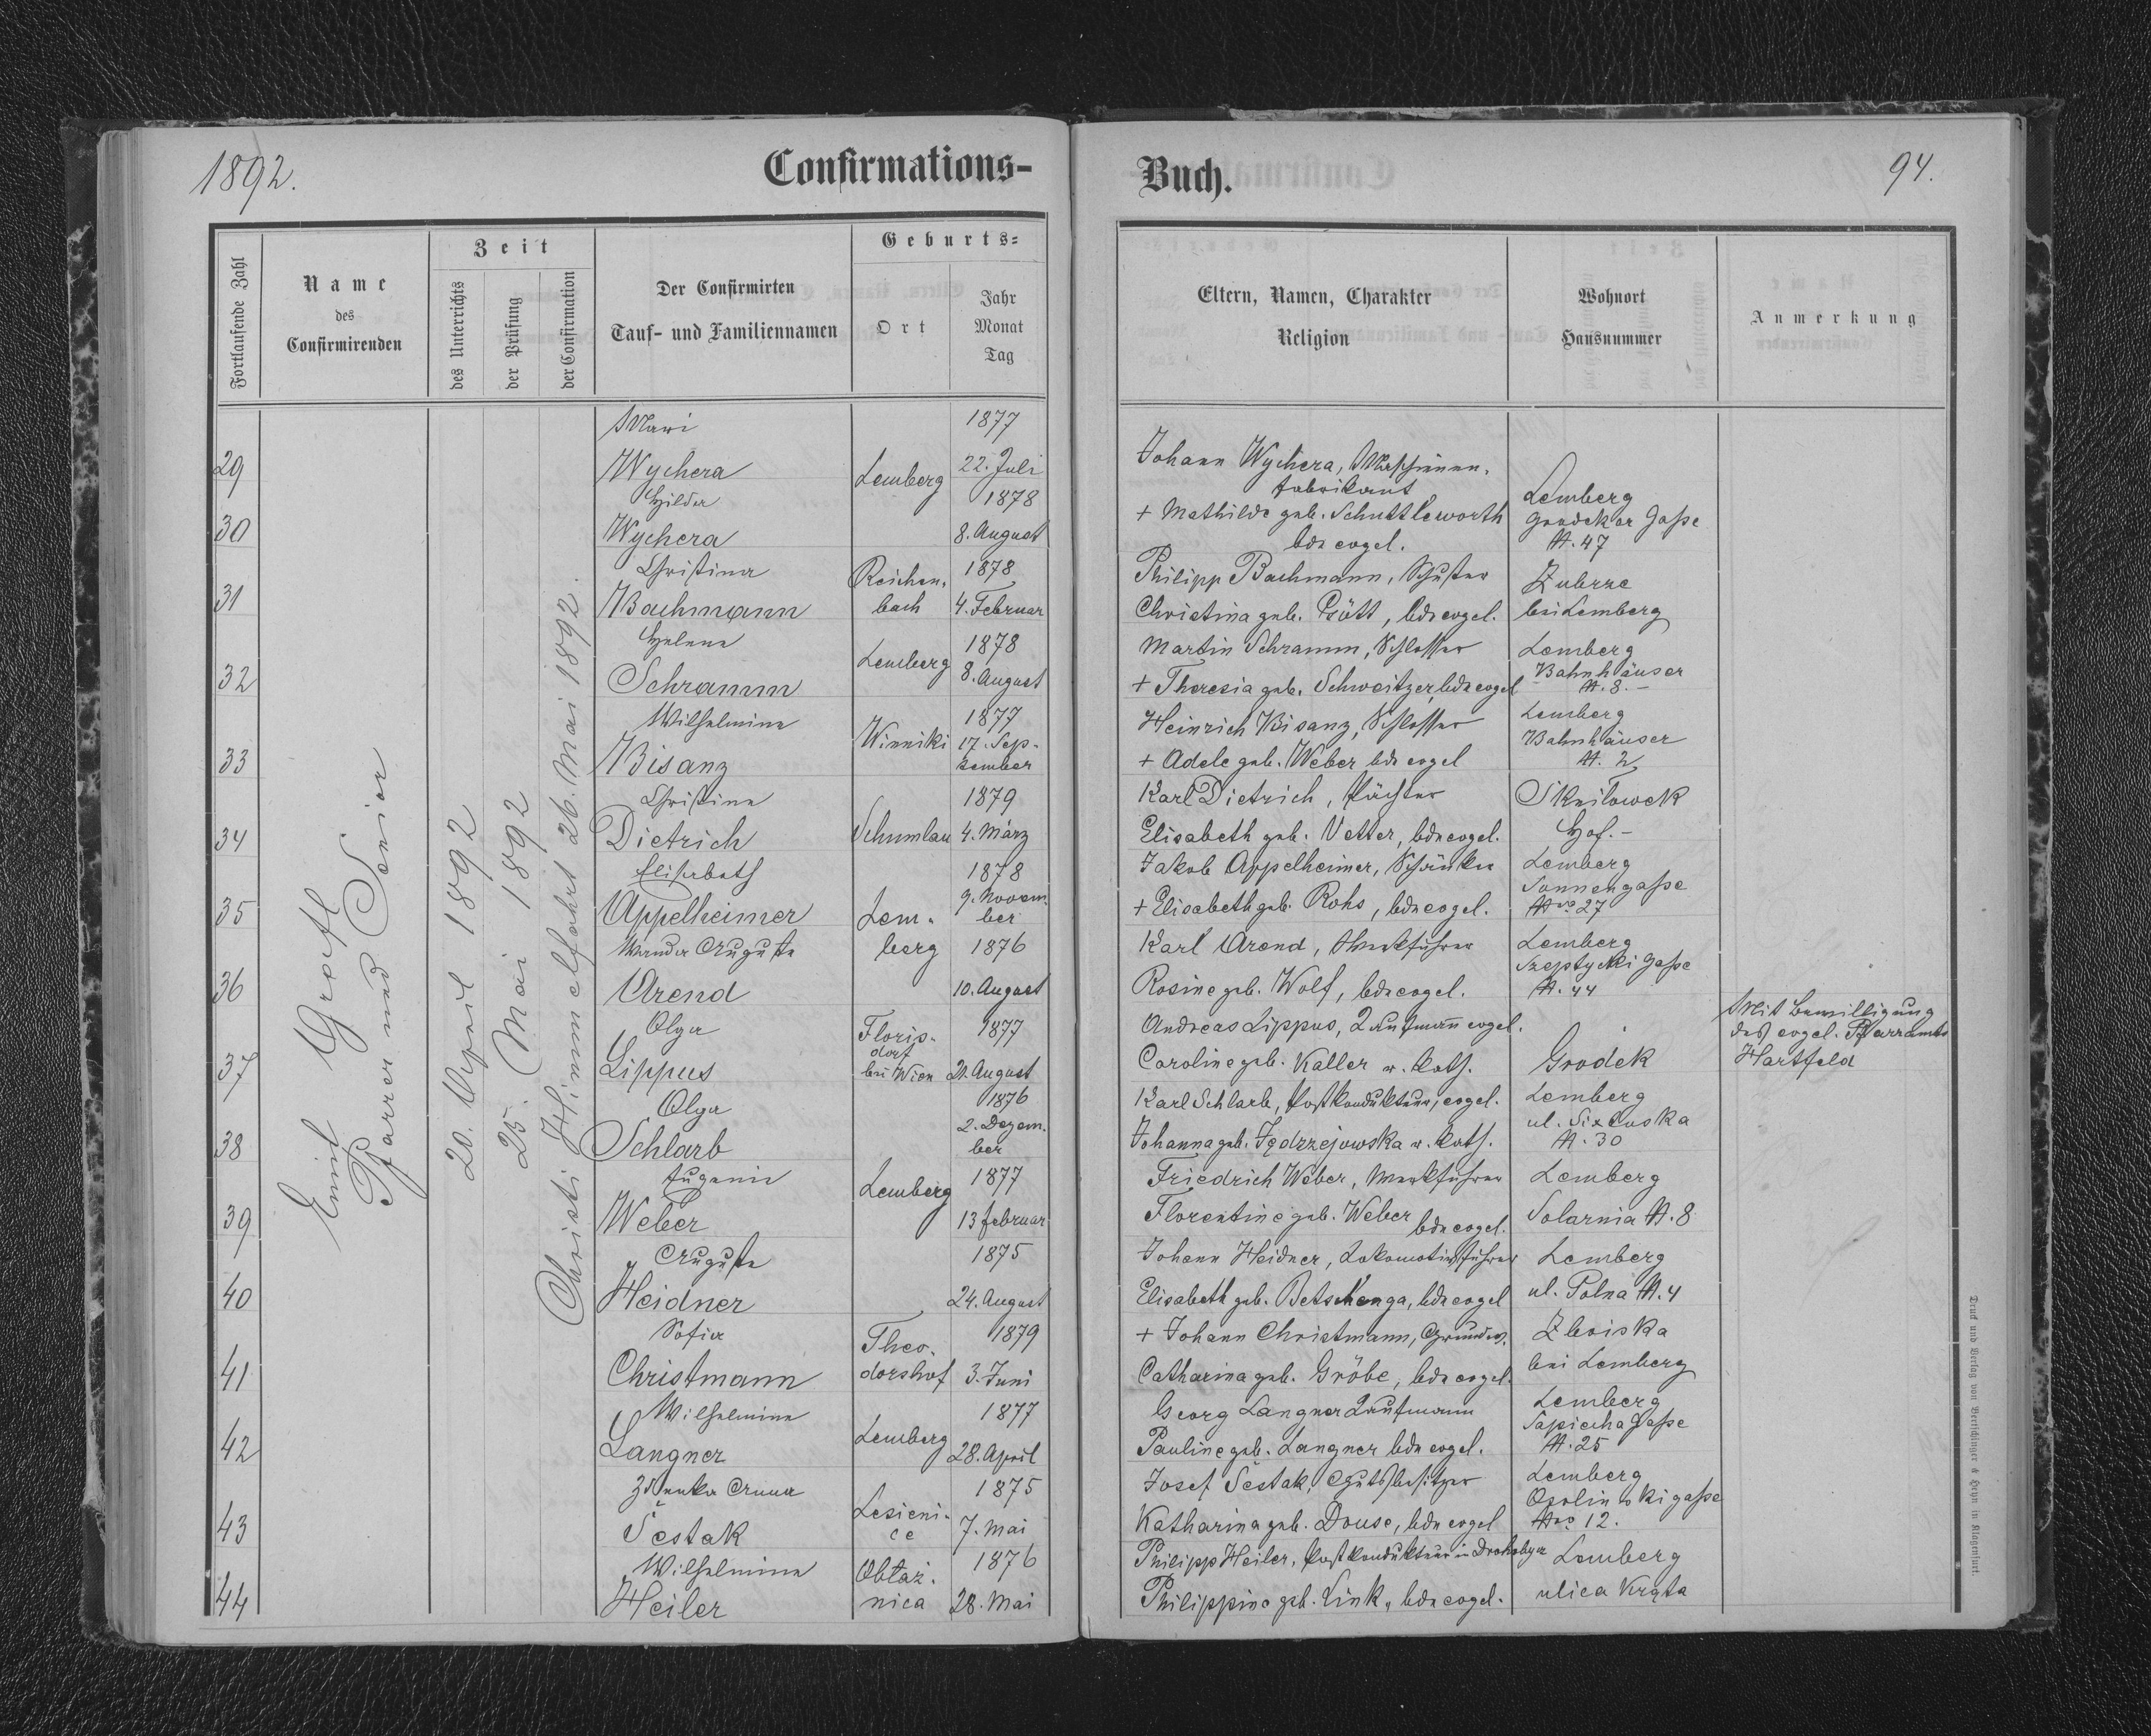 1892.
Confirmations-
Buch.
94.
Fortlaufende Zahl
Name
des
Confirmirenden
Zeit
des Unterrichts
der Prüfung
der Confirmation
Der Confirmirten
Tauf- und Familiennamen
Geburts-
Ort
Jahr
Monat
Tag
Eltern, Namen, Charakter
Religion
Wohnort
Hausnummer
Anmerkung
Emil Grafl
Pfarrer und Senior
20. April 1892
25. Mai 1892
Christi Himmelfahrt 26. Mai 1892.
29
Mari
Wychera
Lemberg
1877
22. Juli
Johann Wychera, Maschinen-
fabrikant
30
Hilda
Wychera
1878
8. August
+ Mathilde geb. Schuttleworth
bde evgel.
Lemberg
Grodeker Gaße
N. 47
31
Christina
Bachmann
Reichen-
bach
1878
4. Februar
Philipp Bachmann, Schuster
Christina geb. Gött, bde evgel.
Zubrze
bei Lemberg
32
Helena
Schramm
Lemberg
1878
8. August
Martin Schramm, Schlosser
+ Theresia geb. Schweitzer, bde evgel
Lemberg
Bahnhäuser
N. 8.-
33
Wilhelmine
Bisanz
Winniki
1877
17. Sep-
tember
Heinrich Bisanz, Schlosser
+ Adele geb. Weber bde evgel
Lemberg
Bahnhäuser
N. 2
34
Christine
Dietrich
Schumlau
1879
4. März
Karl Dietrich, Pächter
Elisabeth geb. Vetter, bde evgel.
Sknilowek
Hof.-
35
Elisabeth
Appelheimer
Lem-
berg
1878
9. Novem-
ber
Jakob Appelheimer, Schänker
+ Elisabeth geb. Rohs, bde evgel.
Lemberg
Sonnengaße
Nro 27
36
Wanda Auguste
Arend
1876
10. August
Karl Arend, Werkführer
Rosine geb. Wolf, bde evgel.
Lemberg
Szeptycki Gaße
N. 44
37
Olga
Lippus
Floris-
dorf
bei Wien
1877
21. August
Andreas Lippus, Kaufmann evgel.
Caroline geb. Kaller r. kath.
Grodek
Mit Bewilligung
des evgel. Pfarramts
Hartfeld
38
Olga
Schlarb
1876
2. Dezem-
ber
Karl Schlarb, Postkondukteur, evgel.
Johanna geb. Jędrzejowska r. kath.
Lemberg
ul. Sixtuska
N. 30
39
Eugenie
Weber
Lemberg
1877
13 februar
Friedrich Weber, Werkführer
Florentine geb. Weber bde evgel.
Lemberg
Solarnia N. 8
40
Auguste
Heidner
1875
24. August
Johann Heidner, Lokomotivführer
Elisabeth geb. Betschenga, bde evgel
Lemberg
ul. Polna N. 4
41
Sofia
Christmann
Theo-
dorshof
1879
3. Juni
+ Johann Christmann, Grundw.
Catharina geb. Gröbe, bde evgel.
Zboiska
bei Lemberg
42
Wilhelmine
Langner
Lemberg
1877
28. April
Georg Langner Kaufmann
Pauline geb. Langner bde evgel.
Lemberg
Sapieha Gaße
N. 25
43
Zdenka Anna
Šestak
Lesieni-
ce
1875
7. Mai
Josef Šestak, Gutsbesitzer
Katharina geb. Douse, bde evgel
Lemberg
Ossolinskigaße
Nro 12.
44
Wilhelmine
Heiler
Obtaź-
nica
1876
28. Mai
Philipp Heiler, Postkondukteur in Drohobycz
Philippine geb. Link, bde evgel.
Lemberg
ulica Kręta
Druck und Verlag von Bertschinger & Heyn in Klagenfurt.